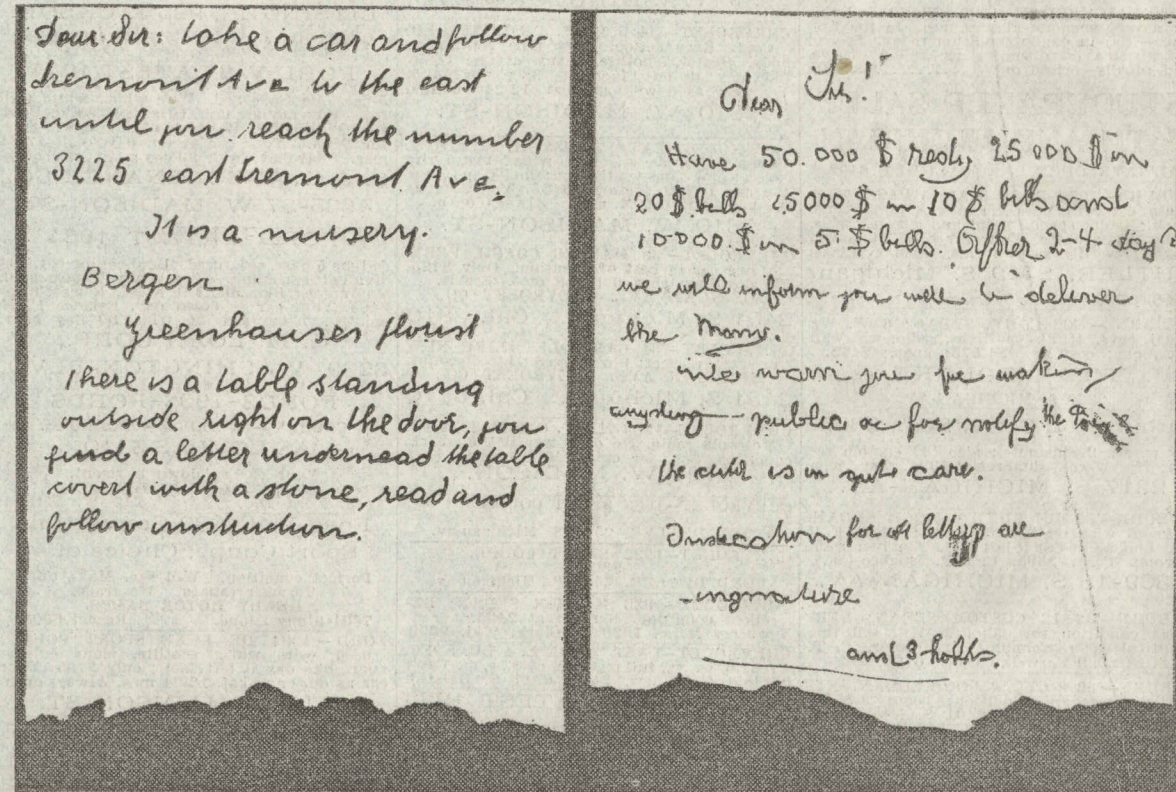 Dear Sir: take a car and follow
tremont Ave to the east
until you reach the number
3225 east tremont Ave.
It is a nursery.
Bergen
Greenhauses florist
there is a table standing
outside right on the door, you
find a letter undernead the table
covert with a stone, read and
follow instruction.
Dear Sir!
Have 50.000 $ redy 25 000 $ in
20 $ bills 15000 $ in 10 $ bills and
10000 $ in 5 $ bills. After 2-4 days
we will inform you were to deliver
the Mony.
We warn you for making
anyding public or for notify the
the child is in gute care.
Indication for all letters are
singnature
and 3 holds.